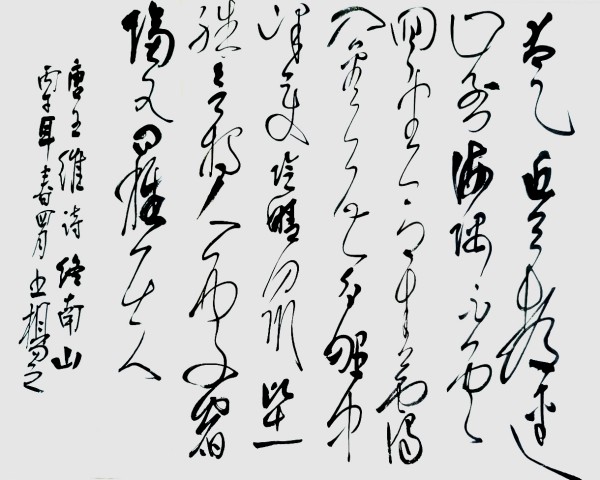 太乙近天都連
山到海隅白雲
回望合青靄
入看無分野中
峰變陰晴衆壑
殊欲投人處宿
隔水問樵夫
唐王維詩終南山
春四月